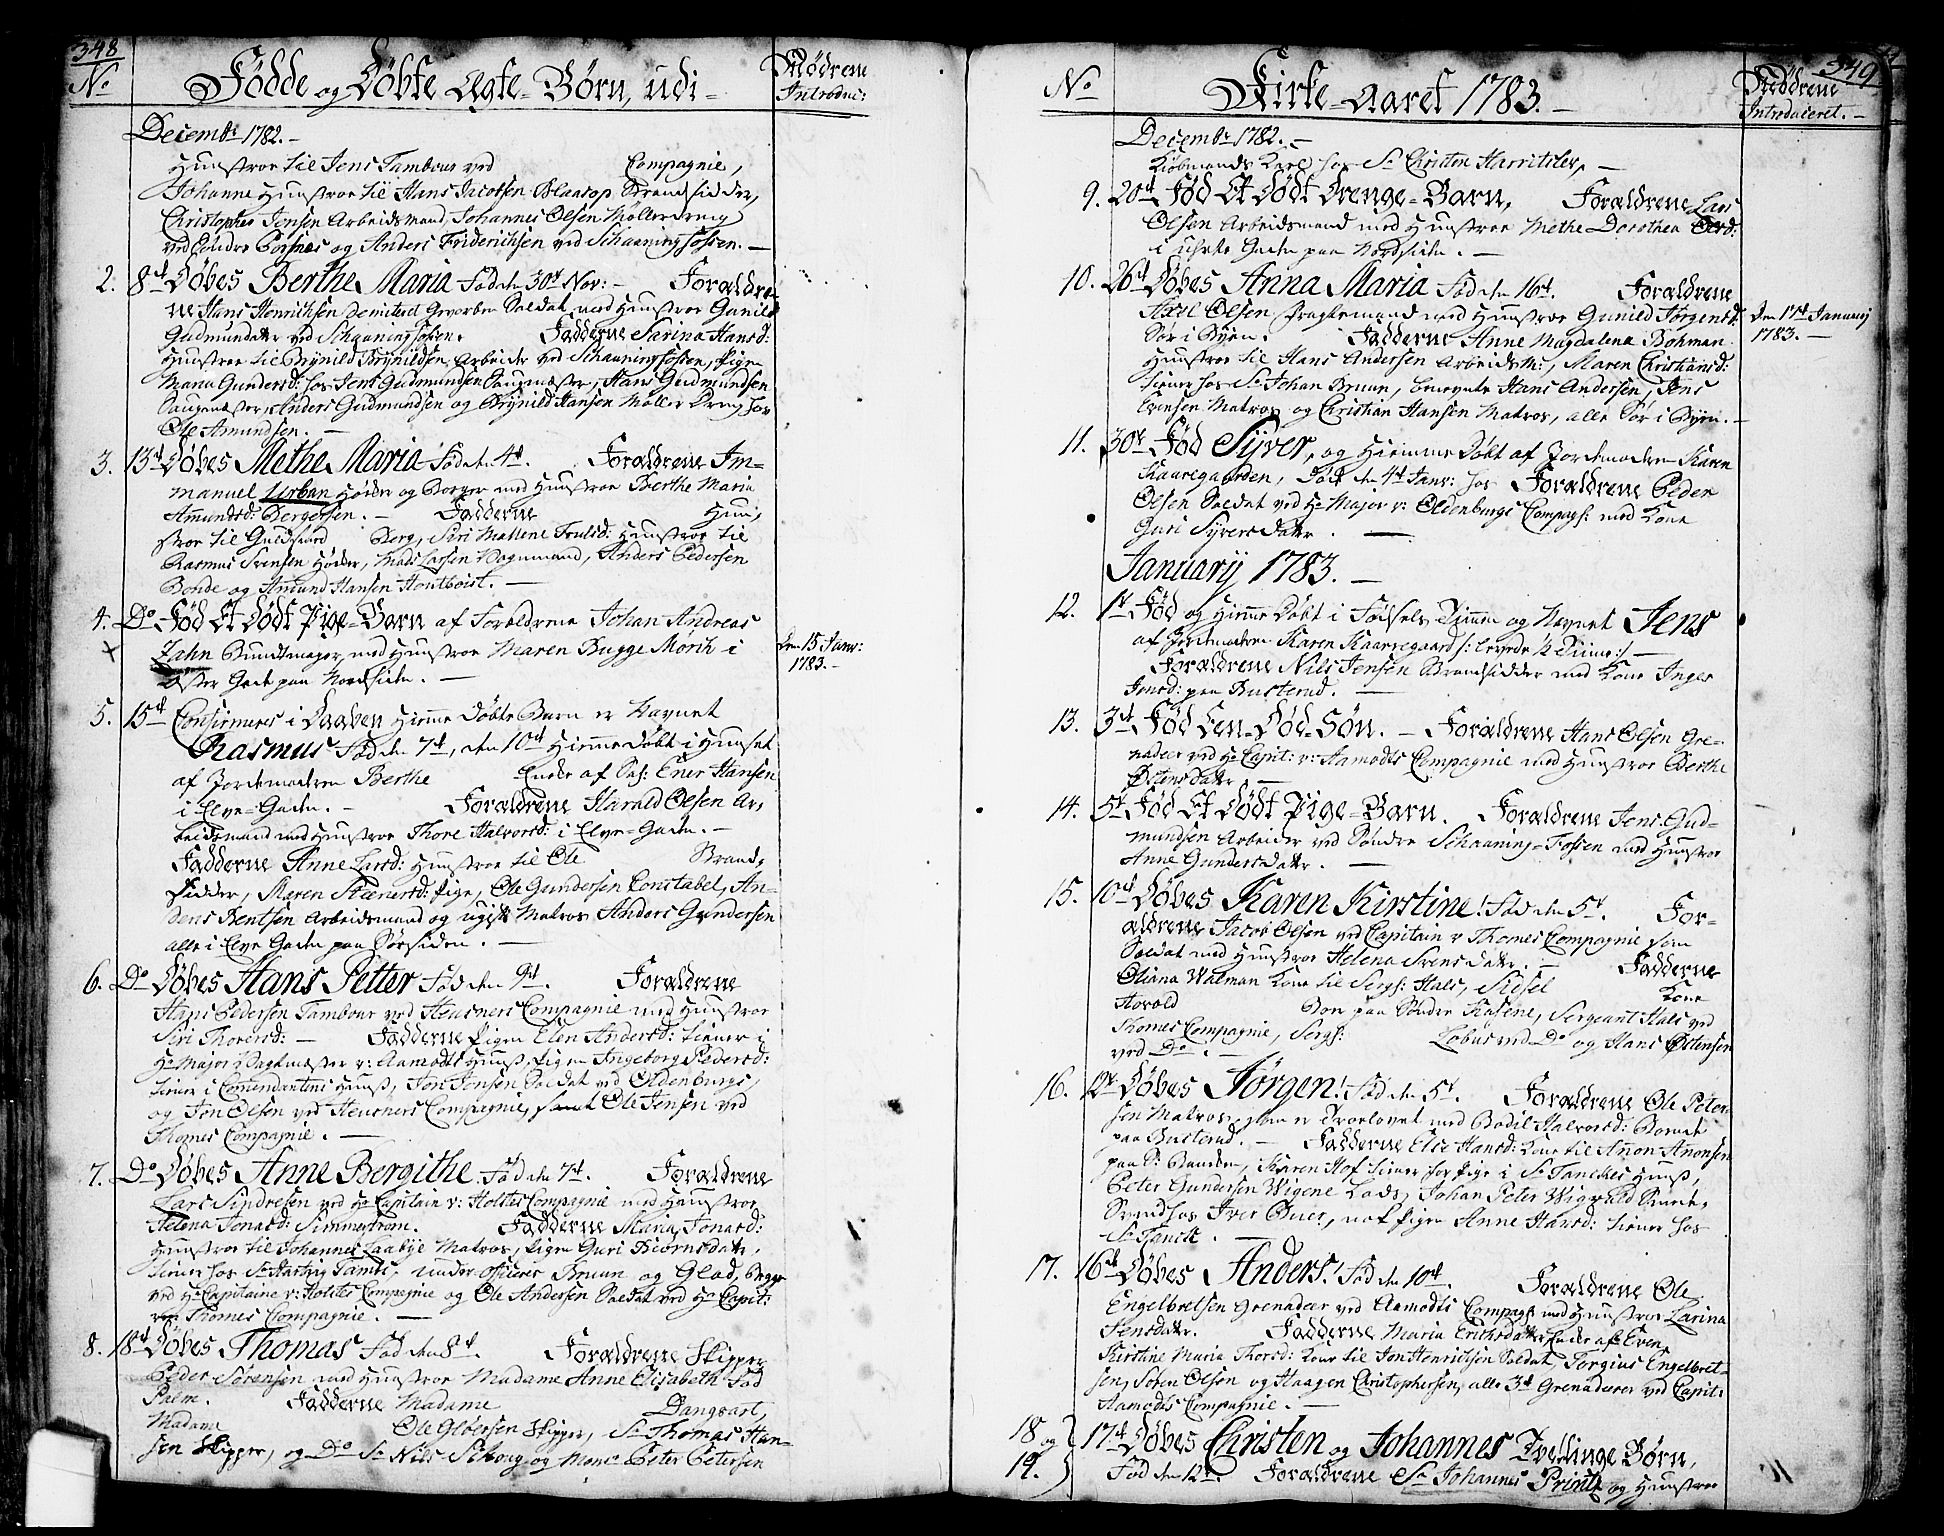 348
No
Fødde og Døbte Ægte-Børn, udi-
Mødrene
Introduc:
Decembr 1782.-
Hunstroe til Jens Tambour ved Compagnie,
Johanne Hunstroe til Hans Jacobsen Blaatop Strandsidder,
Christopher Jensen Arbeidsmand, Johannes Olsen Møllerdreng
ved Søndre og Anders Friderichsen ved Schaaningfossen.-
2. 8d Døbes Berthe Maria Fød den 30t Nov:- Foraldre-
ne Hans Henrichsen Demitert Gevorben Soldat med Hunstroe Gunild
Gudmundsdatter ved Schaaningfossen. Fadderne Sarina Hansd:
Hunstroe til Brynild Brynildsen Arbeider ved Schaaningfossen, Pigen
Maria Gundersd: hos Jens Gudmundsen Saugmester, Hans Gudmundsen
Saugmester, Anders Gudmundsen og Brynild Hansen Møller Dreng hos
Ole Amundsen.-
3. 13d Døbes Methe Maria Fød den 4d. Foraldrene Im-
manuel Urban Høcker og Borger med Hunstroe Berthe Maria
Amundsd: Bergersen.- Fadderne Hun,
stroe til Guldsmed Berg, Siri Mallene Truls d: Hunstroe til
Rasmus Svensen Høcker, Mads Larsen Vognmand, Anders Pedersen
Bonde og Amund Hansen Houtboist.-
4. Do Fød Et Dødt Pige-Barn af Foraldrene Johan Andreas
Zahn Bundtmager med Hunstroe Maren Bugge Mørch i
Øster Gade paa Nordsiden.-
Den 15 Janv:
1783.-
5. 15d Confirmeres i Daaben Hieme Døbte Barn er Navnet
Rasmus Fød den 7d, den 10d Hieme døbt i Hunset
af Jordemoderen Berthe Encke af Sal: Ener Hansen
i Elve-Gaden.- Foraldrene Harald Olsen Ar,
beidsmand med Hunstroe Thore Halvorsd: i Elve-Gaden.-
Fadderne Anne Larsd: Hunstroe til Ole Strand,
sidder, Maren Steenersd: Pige, Ole Gundersen Constabel, An-
ders Bentsen Arbeidsmand og ugift Matros Anders Gundersen
alle i Elve Gaden paa Sørsiden.-
6. Do Døbes Hans Petter Fød den 9d. Foraldrene
Hans Pedersen Tambour ved Heusners Compagnie med Hunstroe
Siri Thoresd:- Fadderne Pigen Elen Andersd: tiener i
Hr Major Vagtmester v: Aamodts Huus, Pigen Ingeborg Pedersd:
tiener i Comendantens Huus, Jon Jonsen Soldat ved Oldenburgs,
og Jon Olsen ved Heusners Compagnie, samt Ole Jensen ved
Thomes Compagnie.-
7. Do Døbes Anne Bergithe Fød den 7d. Foraldrene
Lars Sindresen ved Hr Capitain v: Holstes Compagnie med Hunstroe
Helena Jonasd: Simmestrøm. Fadderne Maria Jonasd:
Hunstroe til Johannes Laabye Matros, Pigen Guri Biørnsdatr.
tiener hos Sr Hartvig Tamb, underofficerer Bruun og Glad, begge
ved Hr Capitaine v: Holstes Compagnie og Ole Andersen Soldat ved Hr Capit:
von Thomes Compagnie.-
8. 18d Døbes Thomas Fød den 8d. Foraldrene Skipper
Peder Sørensen med Hunstroe Madame Anne Elisabeth Fød
Palm. Fadderne Madame Dangvart,
Madame Ole Gløersen Skipper, Sr Thomas Han-
sen Skipper, og Do Sr Nils Seborg og Monsr Peter Petersen
No
Kirke-Aaret 1783.-
349
Mødrene
Introduceret.-
Decembr 1782.-
Kiøbmands Karl hos Sr Christen Harritslev,-
9. 20d Fød Et Dødt Drenge-Barn, Foraldrene Lars
Olsen Arbeidsmand med Hunstroe Methe Dorothea
i Gaden paa Nordsiden.-
10. 26d Døbes Anna Maria Fød den 16d. Foraldrene
Axel Olsen Fragtemand med Hunstroe Gunild Jørgensd:
Sør i Byen. Fadderne Anne Magdalena Bohman
Hunstroe til Hans Andersen Arbeidsm:, Maren Christiansd:
tiener hos Sr Johan Bruun, benevnte Hans Andersen, Jens
Evensen Matros og Christian Hansen Matros, alle Sør i Byen.-
Den 17d Januarij
1783.-
11. 30t Fød Syver, og Hiemme Døbt af Jordemoderen Karen
Kaaregaarden, Død den 4d Janv: hos Foraldrene Peder
Olsen Soldat ved Hr Major v: Oldenburgs Compag: med Kone
Guri Syvers Datter.-
Januarij 1783.-
12. 1t Fød og Hieme Døbt i Fødsels Timen og Navnet Jens
af Jordemoderen Karen Kaaregaard /: levede ½ Time:/-
Foraldrene Nils Jensen Strandsidder med Kone Inger
Jensd: paa Busterud.-
13. 3d Fød Een Død Søn.- Foraldrene Hans Olsen Gre-
nadeer ved Hr Capit: v: Aamodts Compagnie med Hunstroe Berthe
Østens Datter.-
14. 5t Fød Et Dødt Pige-Barn. Foraldrene Jens Gud-
mundsen Arbeider ved Søndre Schaaning-Fossen med Hunstroe
Anne Gunders Datter.-
15. 10d Døbes Karen Kirstine! Fød den 5t. For-
aldrene Jacob Olsen ved Capitain v Thomes Compagnie som
Soldat med Hunstroe Helena Svens Datr.- Fadderne
Oliana Walman Kone til Sergs: Hals, Sidsel Kone
Horold Boe paa Søndre Kasene, Sergeant Hals ved
Thomes Compagnie, Sergs: Løbus ved Do og Hans Østensen
ved Do.-
16. 12t Døbes Jørgen! Fød den 5t. Foraldrene Ole Peter-
sen Matros, som er Trolovet med Bodil Halvorsd: Boende
paa Busterud.- Fadderne Else Hansd: Kone til Anon Anonsen
paa Sr Banden, Karen Hof tiener for Pige i Sr Tanckes Huus,
Peter Gundersen Wigene Lods, Johan Peter Wigvald Snede,
Svend hos Iver Buer, nok Pigen Anne Hansd: tiener hos
Sr Tanck.-
17. 16d Døbes Anders! Fød den 10d. Foraldrene Ole
Engelbretsen Grenadeer ved Aamodts Compag: med Hunstroe Larina
Jensdatr. Fadderne Maria Erichsdatter Encke af Even,
Kirstine Maria Thorsd: Kone til Jon Henrichsen Soldat, Torgius Engelbret-
sen, Søren Olsen og Haagen Christophersen, alle 3d Grenaderer ved Capit:
Aamodts Compagnie.-
18 og 19. 17d Døbes Christen og Johannes Tvellinge Børn,
Fød den 12t. Foraldrene Sr Johannes Printz og Hunstroe